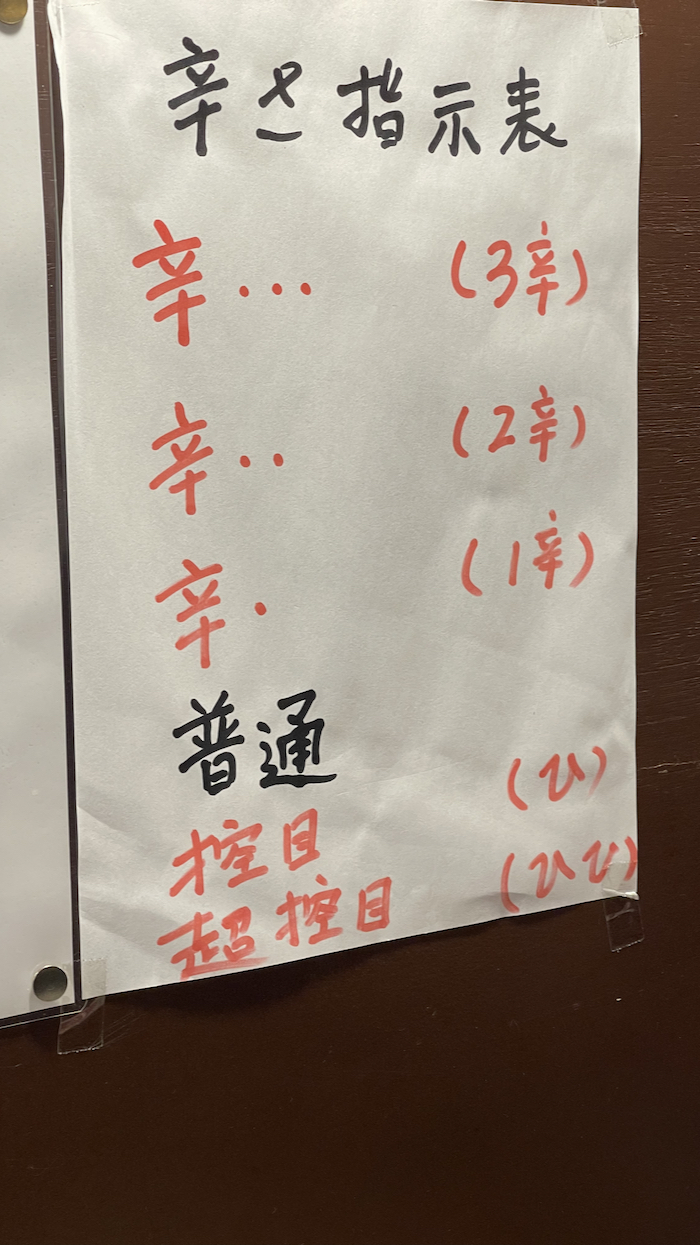 辛さ指示表
辛・・・ (3辛)
辛・・ (2辛)
辛・ (1辛)
普通
控目 (ひ)
超控目 (ひひ)